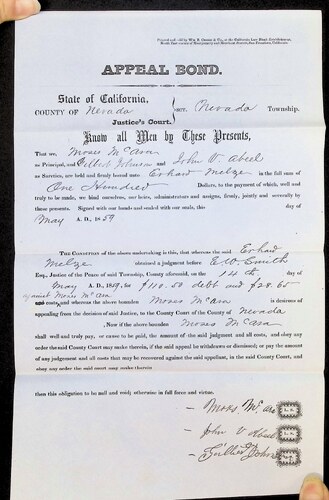 APPEAL BOND.
State of California,
COUNTY OF Nevada
SCT. Nevada Township.
Justice's Court.
Know all Men by These Presents,
That we, Moses McAra
as Principal, and Gilbert Johnson and John V Abeel
as Sureties, are held and firmly bound unto Erhard Metze in the full sum of
One Hundred Dollars, to the payment of which, well and
truly to be made, we bind ourselves, our heirs, administrators and assigns, firmly, jointly and severally by
these presents. Signed with our hands and sealed with our seals, this day of
May A. D., 1859
THE CONDITION of the above undertaking is this, that whereas the said Erhard
Metze obtained a judgment before E W Smith
Esq., Justice of the Peace of said Township, County aforesaid, on the 14th day of
May A. D. 1859, for $110.50 debt and $28.65
against Moses McAra
costs, and whereas the above bounden Moses McAra is desirous of
appealing from the decision of said Justice, to the County Court of the County of Nevada
Now if the above bounden Moses McAra
shall well and truly pay, or cause to be paid, the amount of the said judgment and all costs, and obey any
order the said County Court may make therein, if the said appeal be withdrawn or dismissed; or pay the amount
of any judgment and all costs that may be recovered against the said appellant, in the said County Court, and
obey any order the said court may make therein
then this obligation to be null and void; otherwise in full force and virtue.
Moses McAra
John V Abeel
Gilbert Johnson